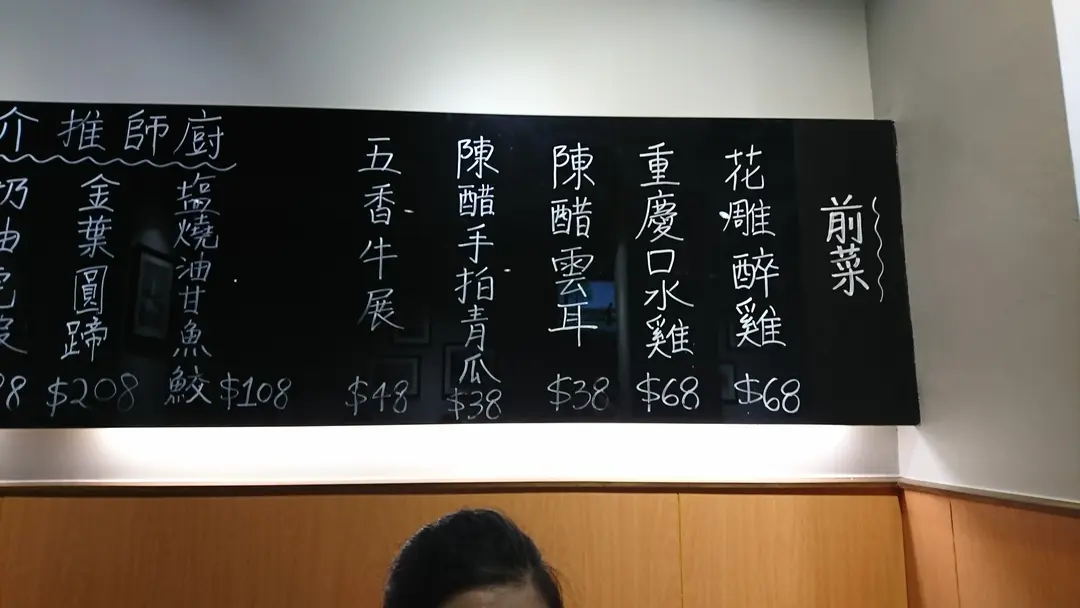 前菜
花雕醉雞 $68
重慶口水雞 $68
陳醋雲耳 $38
陳醋手拍青瓜 $38
五香牛展 $48
廚師推介
塩燒油甘魚鮫 $108
金葉圓蹄 $208
奶油